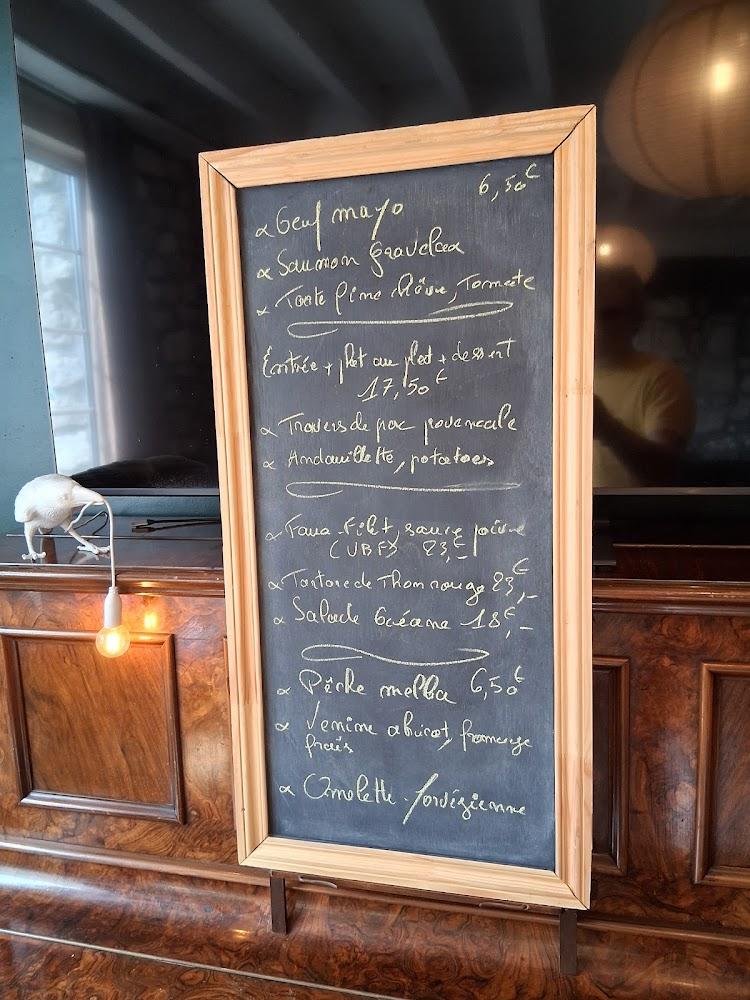 6,50€
∝ Oeuf mayo
∝ Saumon Gravelax
∝ Toste fine chèvre, Tomate
Entrée + plat ou plat + dessert
17,50€
∝ Travers de porc provencale
∝ Andouillette, potatoes
∝ Faux-filet, sauce poivre
(UBF) 23,-€
∝ Tartare de Thon rouge 23,-€
∝ Salade Océane 18,-€
∝ Pêche melba 6,50€
∝ Verrine abricot, fromage
frais
∝ Omelette